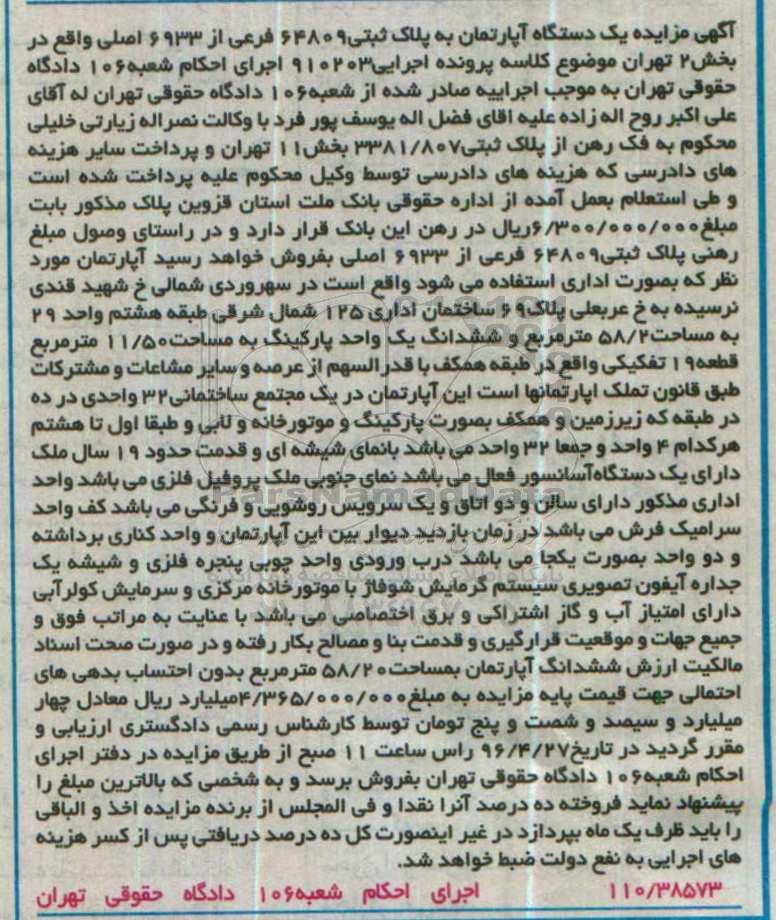 آگهی مزایده یک دستگاه آپارتمان به پلاک ثبتی۶۴۸۰۹ فرعی از ۶۹۳۳ اصلی واقع در
بخش۲ تهران موضوع کلاسه پرونده اجرایی۹۱۰۲۰۳ اجرای احکام شعبه۱۰۶ دادگاه
حقوقی تهران به موجب اجراییه صادر شده از شعبه۱۰۶ دادگاه حقوقی تهران له آقای
علی اکبر روح اله زاده علیه اقای فضل اله یوسف پور فرد با وکالت نصراله زیارتی خلیلی
محکوم به فک رهن از پلاک ثبتی۳۳۸۱/۸۰۷ بخش۱۱ تهران و پرداخت سایر هزینه
های دادرسی که هزینه های دادرسی توسط وکیل محکوم علیه پرداخت شده است
و طی استعلام بعمل آمده از اداره حقوقی بانک ملت استان قزوین پلاک مذکور بابت
مبلغ۶/۳۰۰/۰۰۰/۰۰۰ریال در رهن این بانک قرار دارد و در راستای وصول مبلغ
رهنی پلاک ثبتی۶۴۸۰۹ فرعی از ۶۹۳۳ اصلی بفروش خواهد رسید آپارتمان مورد
نظر که بصورت اداری استفاده می شود واقع است در سهروردی شمالی خ شهید قندی
نرسیده به خ عربعلی پلاک۶۹ ساختمان اداری ۱۲۵ شمال شرقی طبقه هشتم واحد ۲۹
به مساحت۵۸/۲ مترمربع و ششدانگ یک واحد پارکینگ به مساحت۱۱/۵۰ مترمربع
قطعه۱۹ تفکیکی واقع در طبقه همکف با قدرالسهم از عرصه و سایر مشاعات و مشترکات
طبق قانون تملک اپارتمانها است این آپارتمان در یک مجتمع ساختمانی۳۲ واحدی در ده
در طبقه که زیرزمین و همکف بصورت پارکینگ و موتورخانه و لابی و طبقا اول تا هشتم
هرکدام ۴ واحد و جمعا ۳۲ واحد می باشد بانمای شیشه ای و قدمت حدود ۱۹ سال ملک
دارای یک دستگاه‌آسانسور فعال می باشد نمای جنوبی ملک پروفیل فلزی می باشد واحد
اداری مذکور دارای سالن و دو اتاق و یک سرویس روشویی و فرنگی می باشد کف واحد
سرامیک فرش می باشد در زمان بازدید دیوار بین این آپارتمان و واحد کناری برداشته
و دو واحد بصورت یکجا می باشد درب ورودی واحد چوبی پنجره فلزی و شیشه یک
جداره آیفون تصویری سیستم گرمایش شوفاژ با موتورخانه مرکزی و سرمایش کولرآبی
دارای امتیاز آب و گاز اشتراکی و برق اختصاصی می باشد با عنایت به مراتب فوق و
جمیع جهات و موقعیت قرارگیری و قدمت بنا و مصالح بکار رفته و در صورت صحت اسناد
مالکیت ارزش ششدانگ آپارتمان بمساحت۵۸/۲۰ مترمربع بدون احتساب بدهی های
احتمالی جهت قیمت پایه مزایده به مبلغ۴/۳۶۵/۰۰۰/۰۰۰میلیارد ریال معادل چهار
میلیارد و سیصد و شصت و پنج تومان توسط کارشناس رسمی دادگستری ارزیابی و
مقرر گردید در تاریخ۹۶/۴/۲۷ راس ساعت ۱۱ صبح از طریق مزایده در دفتر اجرای
احکام شعبه۱۰۶ دادگاه حقوقی تهران بفروش برسد و به شخصی که بالاترین مبلغ را
پیشنهاد نماید فروخته ده درصد آنرا نقدا و فی المجلس از برنده مزایده اخذ و الباقی
را باید ظرف یک ماه بپردازد در غیر اینصورت کل ده درصد دریافتی پس از کسر هزینه
های اجرایی به نفع دولت ضبط خواهد شد.
۱۱۰/۳۸۵۷۳ اجرای احکام شعبه۱۰۶ دادگاه حقوقی تهران
ParsNamadData